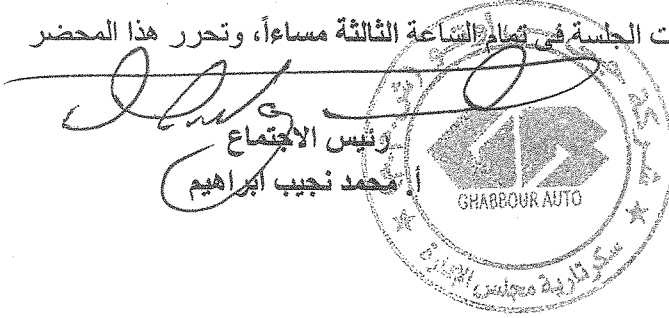 ت الجلسة في تمام الساعة الثالثة مساءاً، وتحرر هذا المحضر
رئيس الاجتماع
أ. محمد نجيب ابراهيم
شركة
GHABBOUR AUTO
سكرتارية مجلس الإدارة